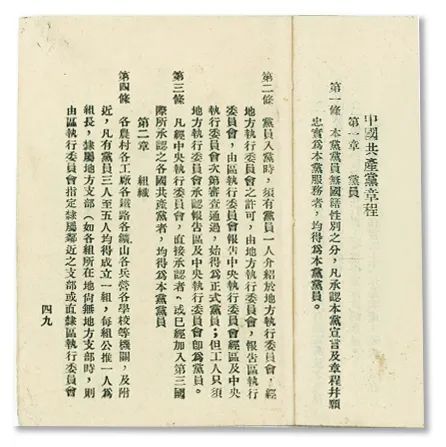 中國共產黨章程
第一章　黨員
第一條　本黨黨員無國籍性別之分，凡承認本黨宣言及章程并願
忠實為本黨服務者，均得為本黨黨員。
第二條　黨員入黨時，須有黨員一人介紹於地方執行委員會，經
地方執行委員會之許可，由地方執行委員會，報告區執行
委員會，由區執行委員會報告中央執行委員會經區及中央
執行委員會次第審查通過，始得為正式黨員；但工人只須
地方執行委員會承認報告區及中央執行委員會即為黨員。
第三條　凡經中央執行委員會，直接承認者、或已經加入第三國
際所承認之各國共產黨者，均得為本黨黨員
第二章　組織
第四條　各農村各工廠各鐵路各鑛山各兵營各學校等機關，及附
近，凡有黨員三人至五人均得成立一組，每組公推一人為
組長，隸屬地方支部（如各組所在地尚無地方支部時，則
由區執行委員會指定隸屬鄰近之支部或直隸區執行委員會
四九